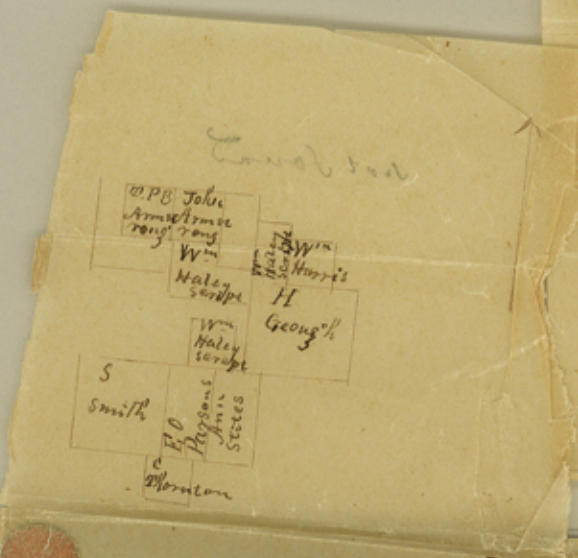 J.P.B
Armst
rong
John
Armst
rong
Wm
Haley
scrape
Wm
Haley
scrape
Wm
Harris
H
Geough
Wm
Haley
scrape
S
Smith
E O
Parsons
Ann
Stites
C
Thornton